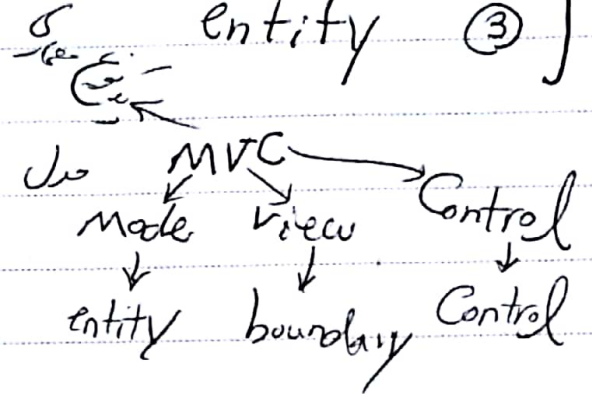 entity ③
MVC
Mode View Control
entity boundary Control